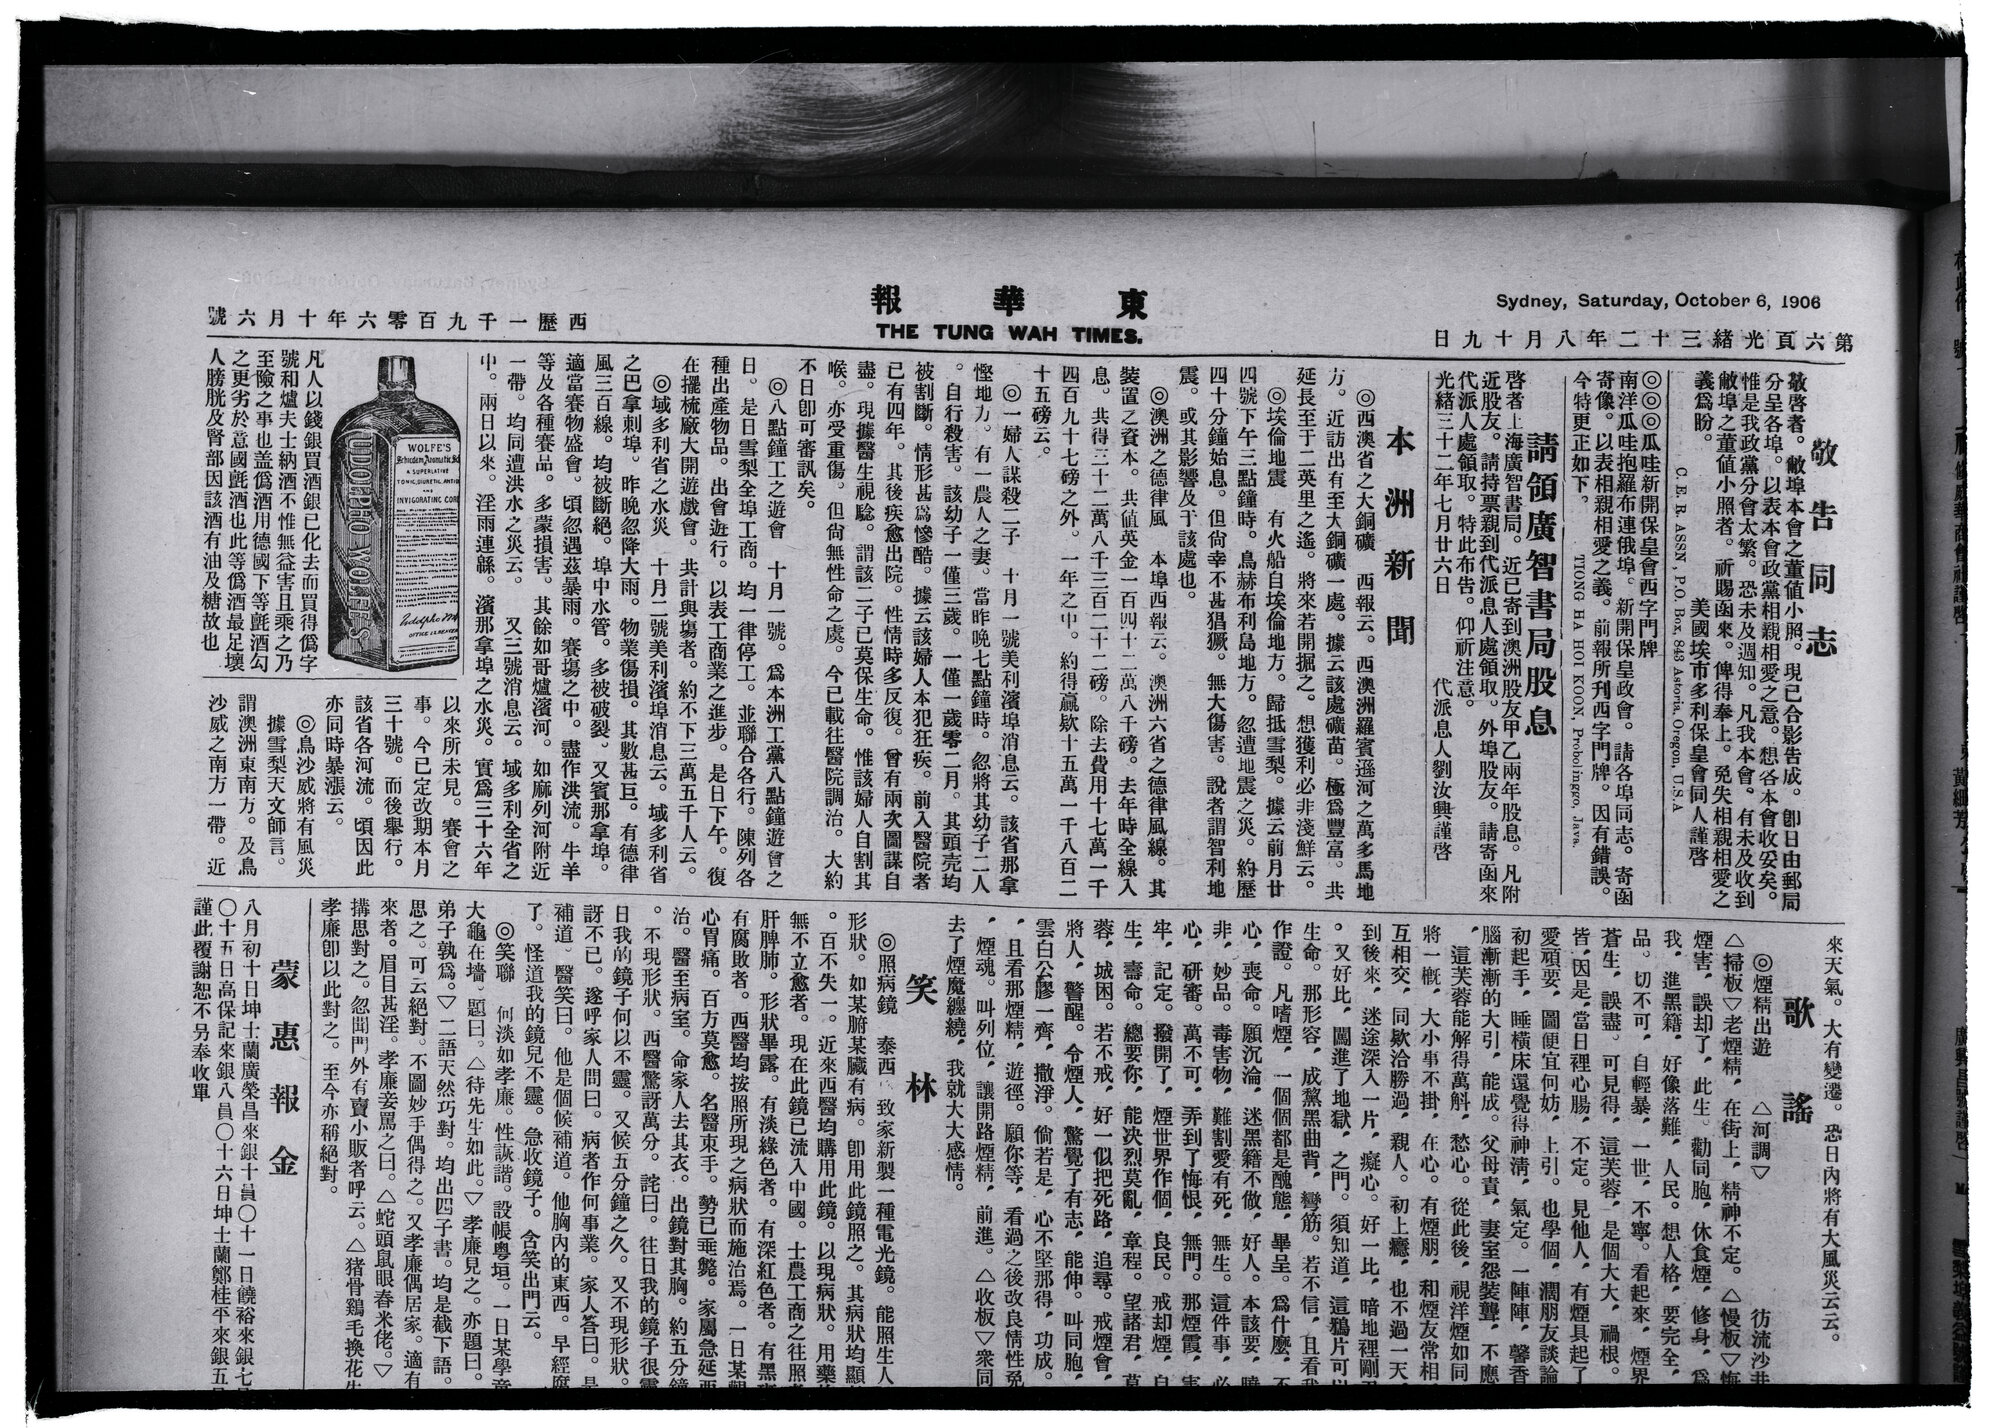 Sydney, Saturday, October 6, 1906
第六頁光緒三十二年八月十九日
東華報
THE TUNG WAH TIMES.
西歷一千九百零六年十月六號
敬告同志
敬啓者。敝埠本會之董値小照。現已合影告成。卽日由郵局
分呈各埠。以表本會政黨相親相愛之意。想各本會收妥矣。
惟是我政黨分會太繁。恐未及週知。凡我本會。有未及收到
敝埠之董値小照者。祈賜函來。俾得奉上。免失相親相愛之
義爲盼。 美國埃市多利保皇會同人謹啓
C. E. R. ASSN., P.O. Box, 843 Astoria, Oregon, U.S.A
◎◎◎瓜哇新開保皇會西字門牌
南洋瓜哇抱羅布連俄埠。新開保皇政會。請各埠同志。寄函
寄像。以表相親相愛之義。前報所刊西字門牌。因有錯誤。
今特更正如下。 TIONG HA HOI KOON, Probolinggo, Java.
請領廣智書局股息
啓者上海廣智書局。近已寄到澳洲股友甲乙兩年股息。凡附
近股友。請持票親到代派息人處領取。外埠股友。請寄函來
代派人處領取。特此布告。仰祈注意。
光緒三十二年七月廿六日 代派息人劉汝興謹啓
本洲新聞
◎西澳省之大銅礦 西報云。西澳洲羅賓遜河之萬多馬地
方。近訪出有至大銅礦一處。據云該處礦苗。極爲豐富。共
延長至于二英里之遙。將來若開掘之。想獲利必非淺鮮云。
◎埃倫地震 有火船自埃倫地方。歸抵雪梨。據云前月廿
四號下午三點鐘時。鳥赫布利島地方。忽遭地震之災。約歷
四十分鐘始息。但尙幸不甚猖獗。無大傷害。說者謂智利地
震。或其影響及于該處也。
◎澳洲之德律風 本埠西報云。澳洲六省之德律風線。其
裝置之資本。共値英金一百四十二萬八千磅。去年時全線入
息。共得三十二萬八千三百二十二磅。除去費用十七萬一千
四百九十七磅之外。一年之中。約得贏欵十五萬一千八百二
十五磅云。
◎一婦人謀殺二子 十月一號美利濱埠消息云。該省那拿
慳地方。有一農人之妻。當昨晚七點鐘時。忽將其幼子二人
。自行殺害。該幼子一僅三歲。一僅一歲零二月。其頭壳均
被割斷。情形甚爲慘酷。據云該婦人本犯狂疾。前入醫院者
已有四年。其後疾愈出院。性情時多反復。曾有兩次圖謀自
盡。現據醫生視騐。謂該二子已莫保生命。惟該婦人自割其
喉。亦受重傷。但尙無性命之虞。今已載往醫院調治。大約
不日卽可審訊矣。
◎八點鐘工之遊會 十月一號。爲本洲工黨八點鐘遊會之
日。是日雪梨全埠工商。均一律停工。並聯合各行。陳列各
種出產物品。出會遊行。以表工商業之進步。是日下午。復
在擺梳廠大開遊戲會。共計與塲者。約不下三萬五千人云。
◎域多利省之水災 十月二號美利濱埠消息云。域多利省
之巴拿剌埠。昨晚忽降大雨。物業傷損。其數甚巨。有德律
風三百線。均被斷絕。埠中水管。多被破裂。又賓那拿埠。
適當賽物盛會。頃忽遇茲暴雨。賽塲之中。盡作洪流。牛羊
等及各種賽品。多蒙損害。其餘如哥爐濱河。如麻列河附近
一帶。均同遭洪水之災云。 又三號消息云。域多利全省之
中。兩日以來。淫雨連緜。濱那拿埠之水災。實爲三十六年
以來所未見。賽會之
事。今已定改期本月
三十號。而後舉行。
該省各河流。頃因此
亦同時暴漲云。
◎鳥沙威將有風災
據雪梨天文師言。
謂澳洲東南方。及鳥
沙威之南方一帶。近
WOLFE'S
Schiedam Aromatic
A SUPERLATIVE
TONIC, DIURETIC,
AND
INVIGORATING
UDOLPHO WOLFE'S
凡人以錢銀買酒銀已化去而買得僞字
號和爐夫士納酒不惟無益害且乘之乃
至險之事也盖僞酒用德國下等氈酒勾
之更劣於意國氈酒也此等僞酒最足壞
人膀胱及腎部因該酒有油及糖故也
來天氣。大有變遷。恐日內將有大風災云云。
歌謠
◎煙精出遊 △河調▽ 彷流沙
△掃板▽老煙精，在街上，精神不定。△慢板▽
煙害，誤却了，此生。勸同胞，休食煙，修身，爲
我，進黑籍，好像落難，人民。想人格，要完全，
品。切不可，自輕暴，一世，不寧。看起來，煙界
蒼生，誤盡。可見得，這芙蓉，是個大大，禍根。
皆，因是，當日裡心腸，不定。見他人，有煙具起了
愛頑要，圖便宜何妨，上引。也學個，濶朋友談論
初起手，睡橫床還覺得神淸，氣定。一陣陣，馨香
腦漸漸的大引，能成。父母責，妻室怨裝聾，不應
，這芙蓉能解得萬斛，愁心。從此後，視洋煙如同
將一概，大小事不掛，在心。有煙朋，和煙友常相
互相交，同欵洽勝過，親人。初上癮，也不過一天，
到後來，迷途深入一片，癡心。好一比，暗地裡剛
。又好比，闖進了地獄，之門。須知道，這鴉片可以
生命。那形容，成黧黑曲背，彎筋。若不信，且看我
作證。凡嗜煙，一個個都是醜態，畢呈。爲什麼，不
心，喪命。願沉淪，迷黑籍不做，好人。本該要，曉
非，妙品。毒害物，難割愛有死，無生。這件事，必
心，硏審。萬不可，弄到了悔恨，無門。那煙霞，害
牢，記定。撥開了，煙世界作個，良民。戒却煙，自
生，壽命。總要你，能决烈莫亂，章程。望諸君，莫
蓉，城困。若不戒，好一似把死路，追尋。戒煙會，
將人，警醒。令煙人，驚覺了有志，能伸。叫同胞，
雲白公醪一齊，撒淨。倘若是，心不堅那得，功成。
，且看那煙精，遊徑。願你等，看過之後改良情性免
，煙魂。叫列位，讓開路煙精，前進。△收板▽衆同
去了煙魔纏繞，我就大大感情。
笑林
◎照病鏡 泰西 致家新製一種電光鏡。能照生人
形狀。如某腑某臟有病。卽用此鏡照之。其病狀均顯
。百不失一。近來西醫均購用此鏡。以現病狀。用藥
無不立愈者。現在此鏡已流入中國。士農工商之往照者
肝脾肺。形狀畢露。有淡綠色者。有深紅色者。有黑
有腐敗者。西醫均按照所現之病狀而施治焉。一日某
心胃痛。百方莫愈。名醫束手。勢已垂斃。家屬急延西
治。醫至病室。命家人去其衣。出鏡對其胸。約五分鐘
。不現形狀。西醫驚訝萬分。詫曰。往日我的鏡子很靈
日我的鏡子何以不靈。又候五分鐘之久。又不現形狀。
訝不已。遂呼家人問曰。病者作何事業。家人答曰。是
補道。醫笑曰。他是個候補道。他胸內的東西。早經腐
了。怪道我的鏡兒不靈。急收鏡子。含笑出門云。
◎笑聯 何淡如孝廉。性詼諧。設帳粤垣。一日某學
大龜在墻。題曰。△待先生如此。▽孝廉見之。亦題曰。
弟子孰爲。▽二語天然巧對。均出四子書。均是截下語。
思之。可云絕對。不圖妙手偶得之。又孝廉偶居家。適有
來者。眉目甚淫。孝廉妾罵之曰。△蛇頭鼠眼舂米佬。▽
搆思對之。忽聞門外有賣小販者呼云。△猪骨鷄毛換花生
孝廉卽以此對之。至今亦稱絕對。
蒙惠報金
八月初十日坤士蘭廣榮昌來銀十員〇十一日饒裕來銀七
〇十五日高保記來銀八員〇十六日坤士蘭鄭桂平來銀五
謹此覆謝恕不另奉收單